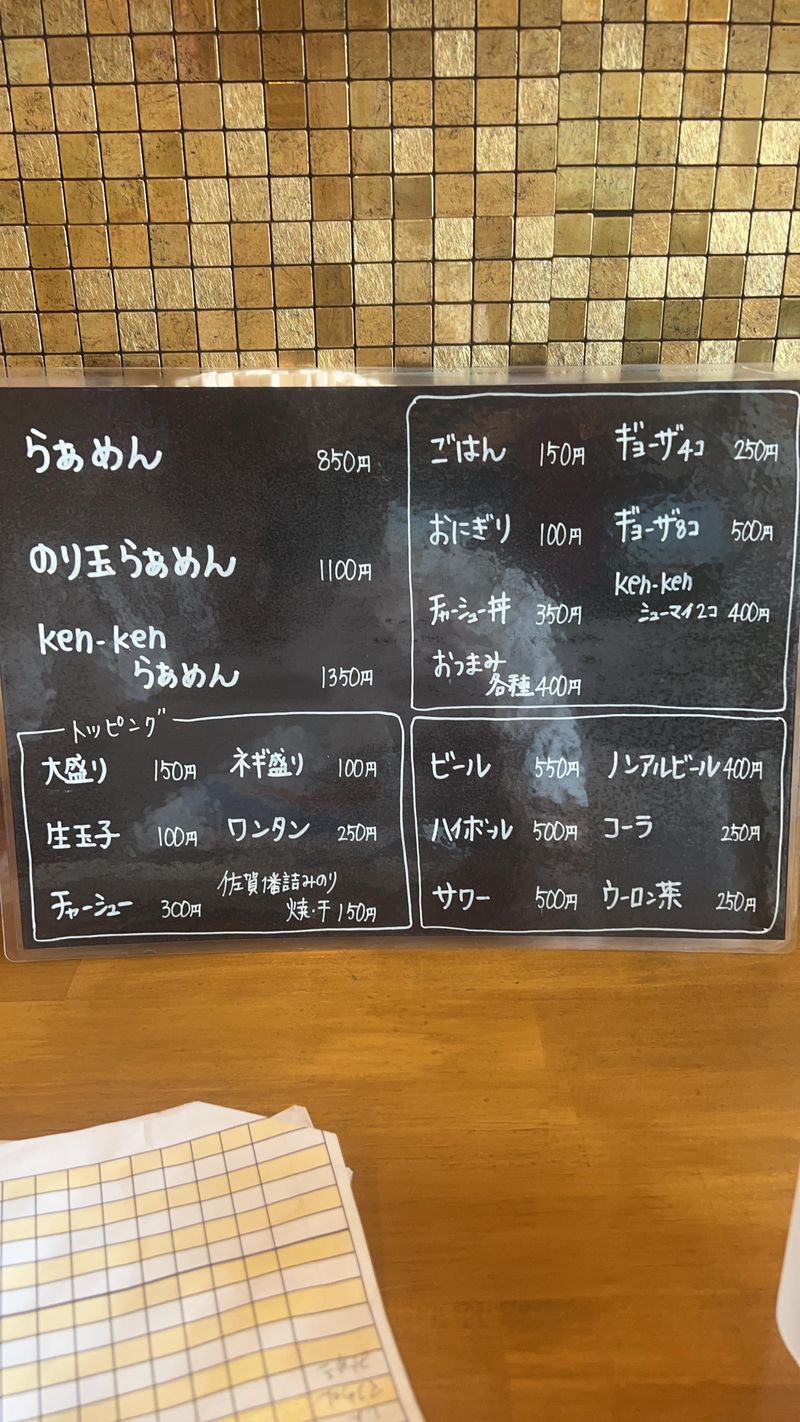 らぁめん 850円
のり玉らぁめん 1100円
ken-ken
らぁめん 1350円
トッピング
大盛り 150円 ネギ盛り 100円
生玉子 100円 ワンタン 250円
チャーシュー 300円 佐賀一番詰みのり
焼・干 150円
ごはん 150円 ギョーザ4コ 250円
おにぎり 100円 ギョーザ8コ 500円
チャーシュー丼 350円 ken-ken
シューマイ2コ 400円
おつまみ
各種400円
ビール 550円 ノンアルビール400円
ハイボール 500円 コーラ 250円
サワー 500円 ウーロン茶 250円